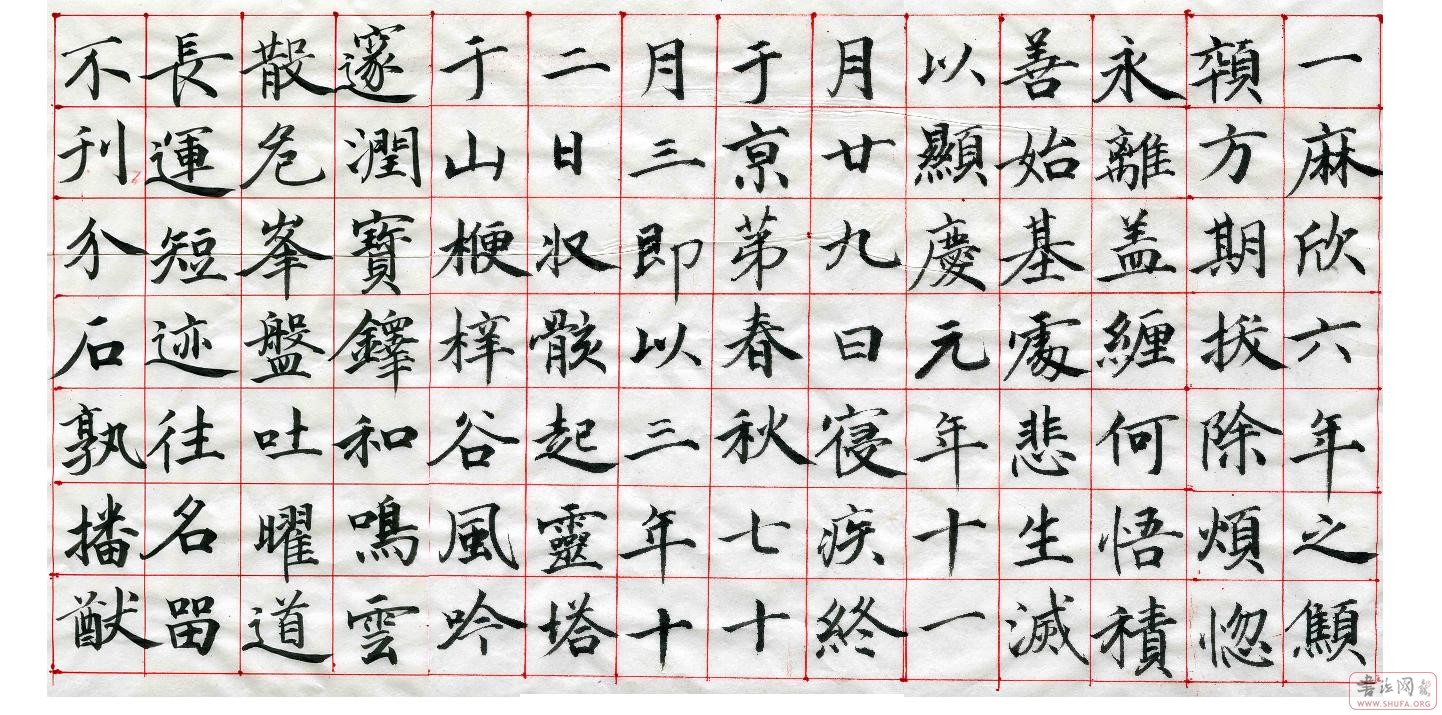 一麻欣六年之顦
顇方期拔除煩惚
永離盖纏何悟積
善始基處悲生滅
以顯慶元年十一
月廿九日寑疾終
于京第春秋七十
月三即以三年十
二日収骸起靈塔
于山楩梓谷風吟
邃澗寶鐸和鳴雲
散危峯盤吐曜道
長運短迹往名留
不刊介石孰播猷
书法网
WWW.SHUFA.ORG